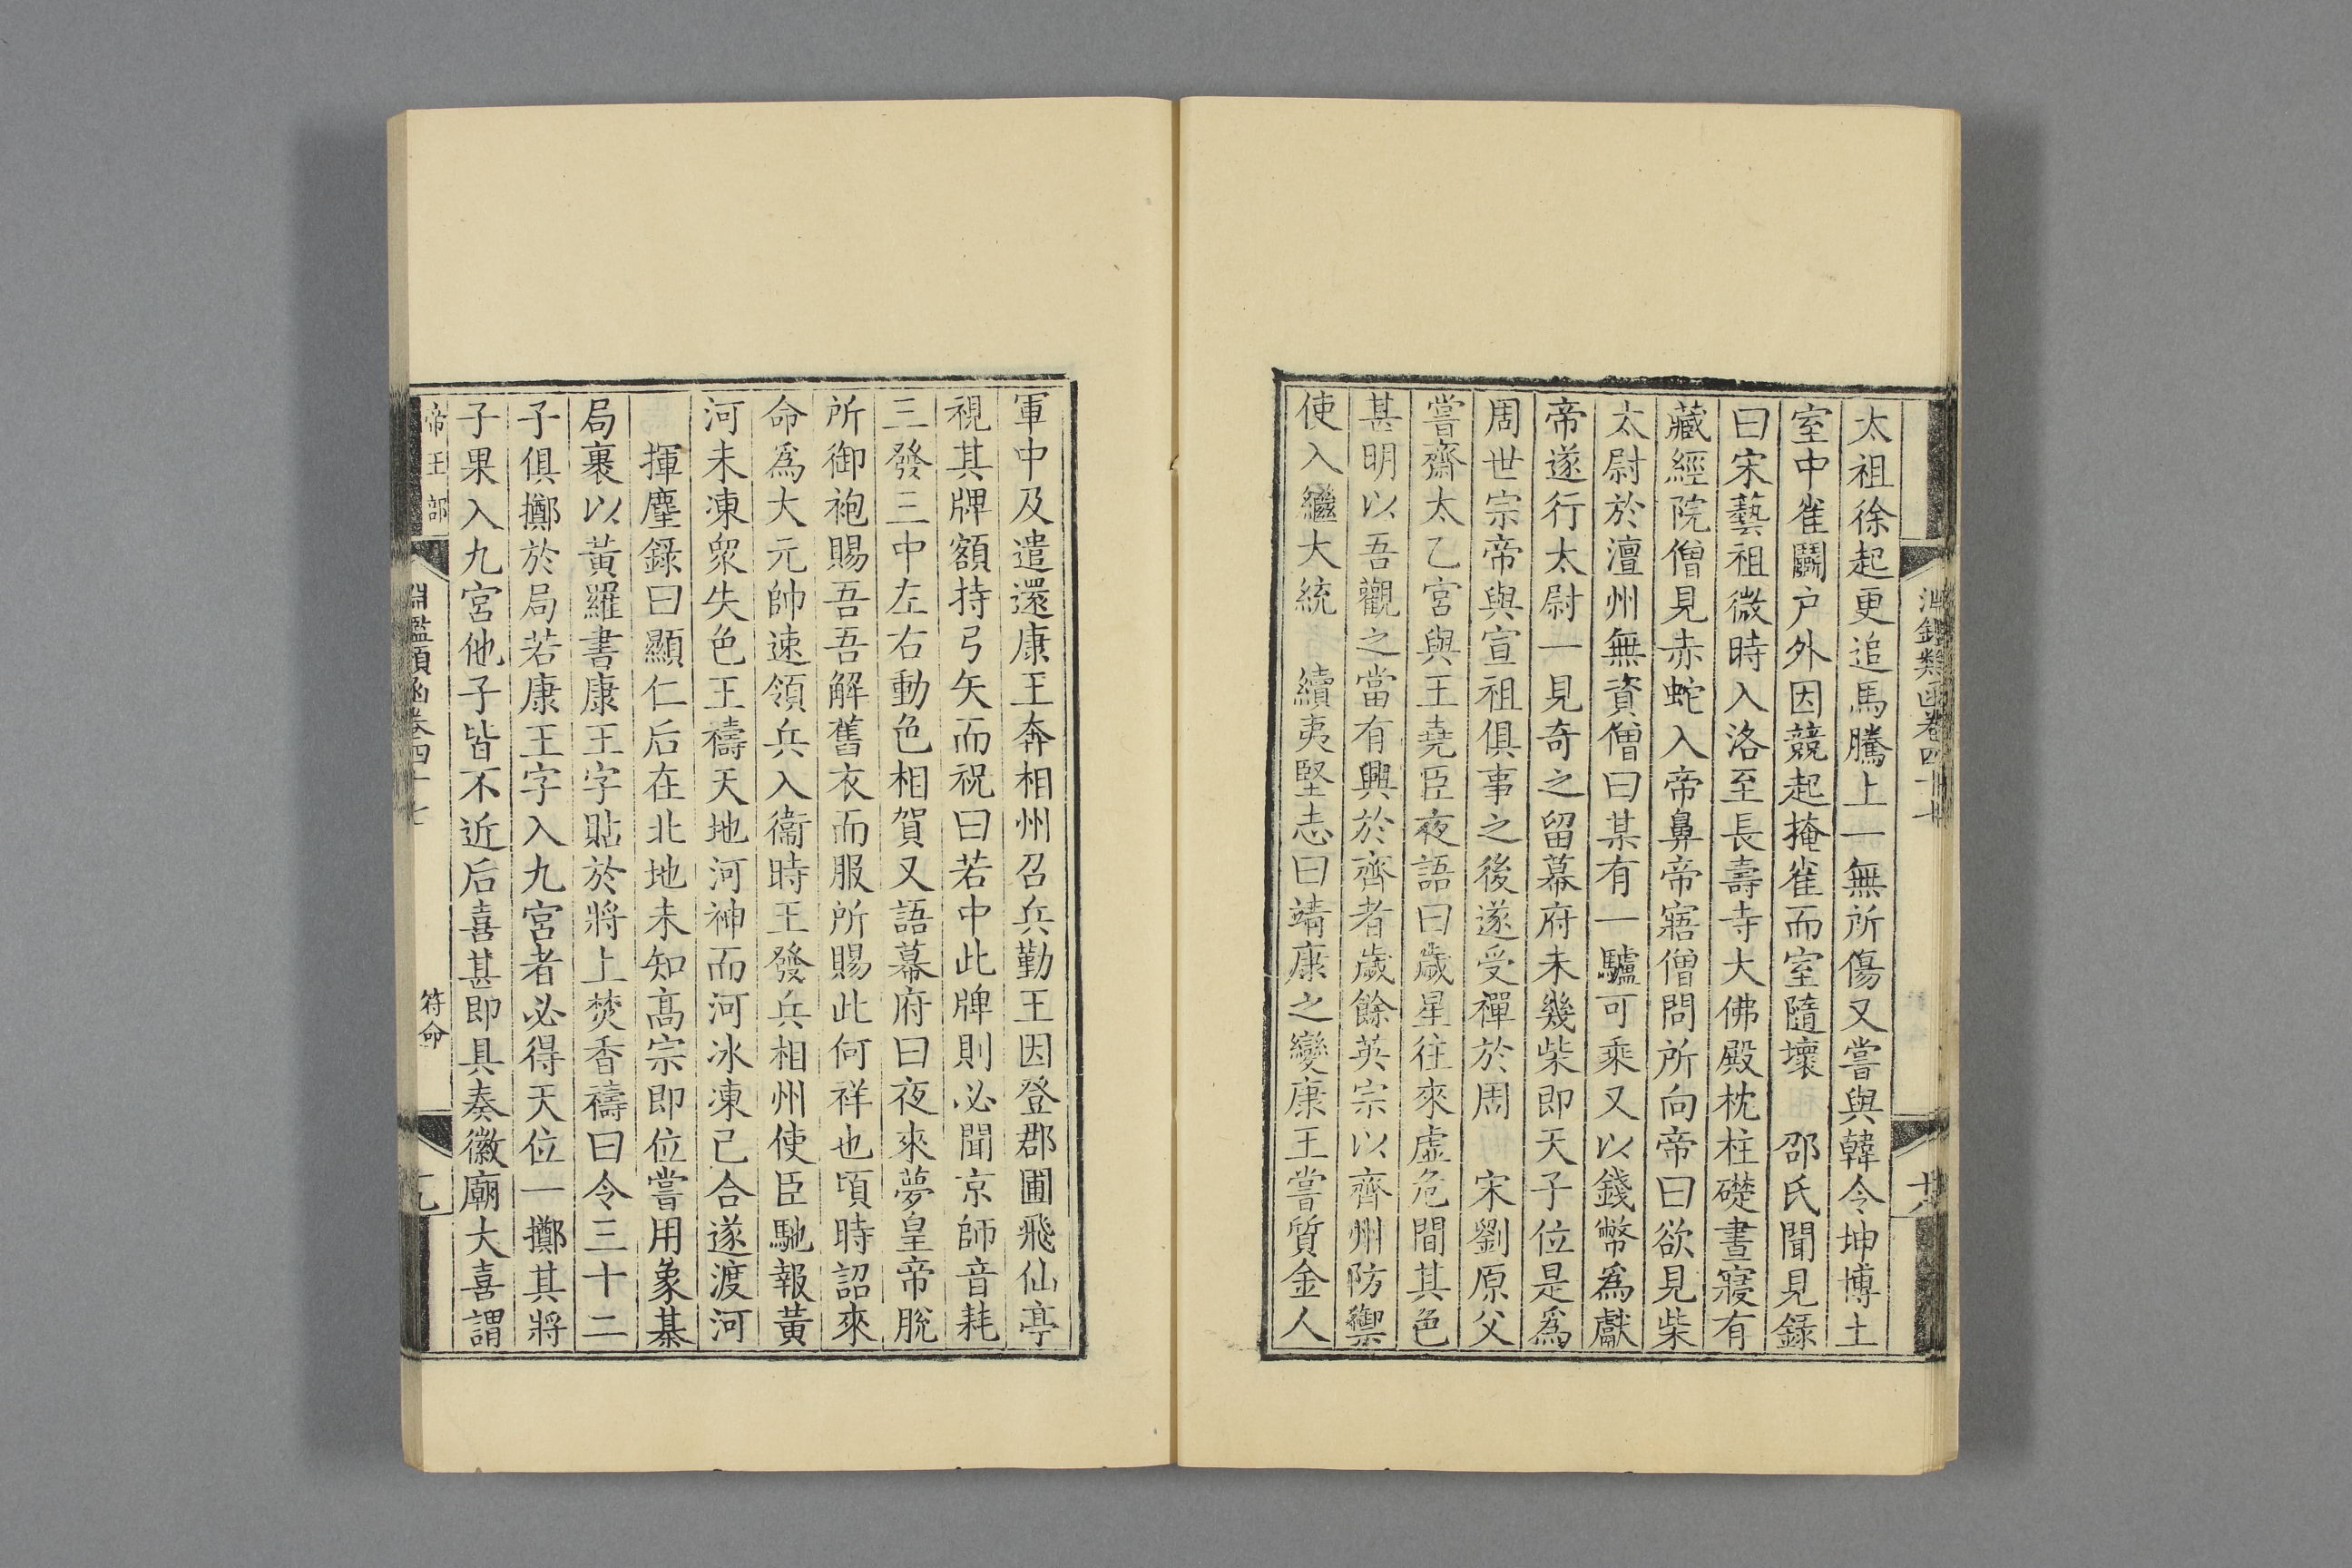 淵鑑類函卷四十七
太祖徐起更追馬騰上一無所傷又嘗與韓令坤博土
室中雀鬬戶外因競起掩雀而室隨壞 邵氏聞見錄
曰宋藝祖微時入洛至長壽寺大佛殿枕柱礎晝寢有
藏經院僧見赤蛇入帝鼻帝寤僧問所向帝曰欲見柴
太尉於澶州無資僧曰某有一驢可乘又以錢幣爲獻
帝遂行太尉一見奇之留幕府未幾柴即天子位是爲
周世宗帝與宣祖俱事之後遂受禪於周 宋劉原父
嘗齋太乙宮與王堯臣夜語曰歲星往來虛危間其色
甚明以吾觀之當有興於齊者歲餘英宗以齊州防禦
使入繼大統 續夷堅志曰靖康之變康王嘗質金人
軍中及遣還康王奔相州召兵勤王因登郡圃飛仙亭
視其牌額持弓矢而祝曰若中此牌則必聞京師音耗
三發三中左右動色相賀又語幕府曰夜來夢皇帝脫
所御袍賜吾吾解舊衣而服所賜此何祥也頃時詔來
命爲大元帥速領兵入衞時王發兵相州使臣馳報黃
河未凍眾失色王禱天地河神而河冰凍已合遂渡河
揮塵錄曰顯仁后在北地未知高宗即位嘗用象棊
局裹以黃羅書康王字貼於將上焚香禱曰今三十二
子俱擲於局若康王字入九宮者必得天位一擲其將
子果入九宮他子皆不近后喜甚即具奏徽廟大喜謂
帝王部 淵鑑類函卷四十七 符命